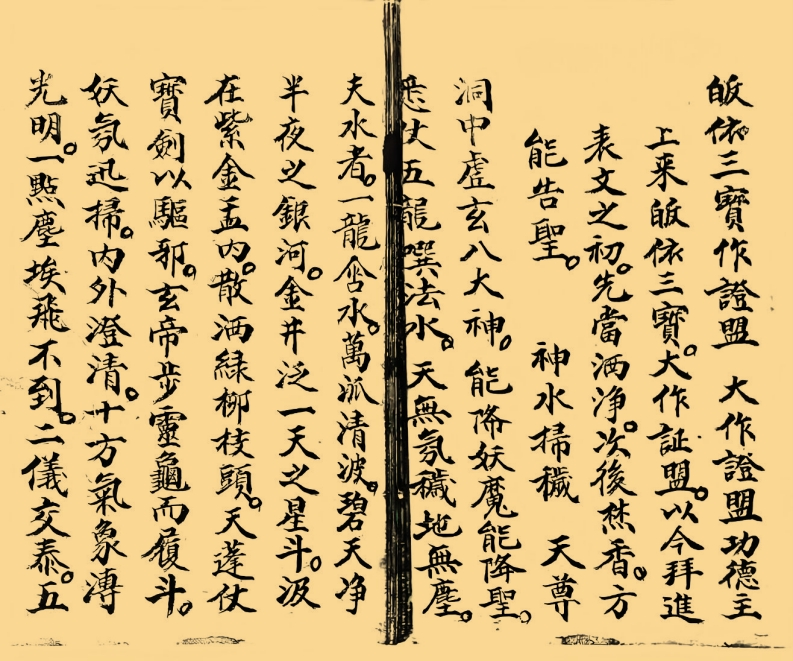 皈依三寶作證盟　大作證盟功德主
上来皈依三寶。大作証盟。以今拜進
表文之初。先當洒净。次後焚香。方
能告聖。　神水掃穢　天尊
洞中虛玄八大神。能降妖魔能降聖。
悉仗五龍噀法水。天無氛穢地無塵。
夫水者。一龍含水。萬派清波。碧天净
半夜之銀河。金井泛一天之星斗。汲
在紫金盂内。散洒緑柳枝頭。天蓬仗
寶劍以驅邪。玄帝步靈龜而履斗。
妖氛迅掃。内外澄清。十方氣象漙
光明。一點塵埃飛不到。二儀交泰。五